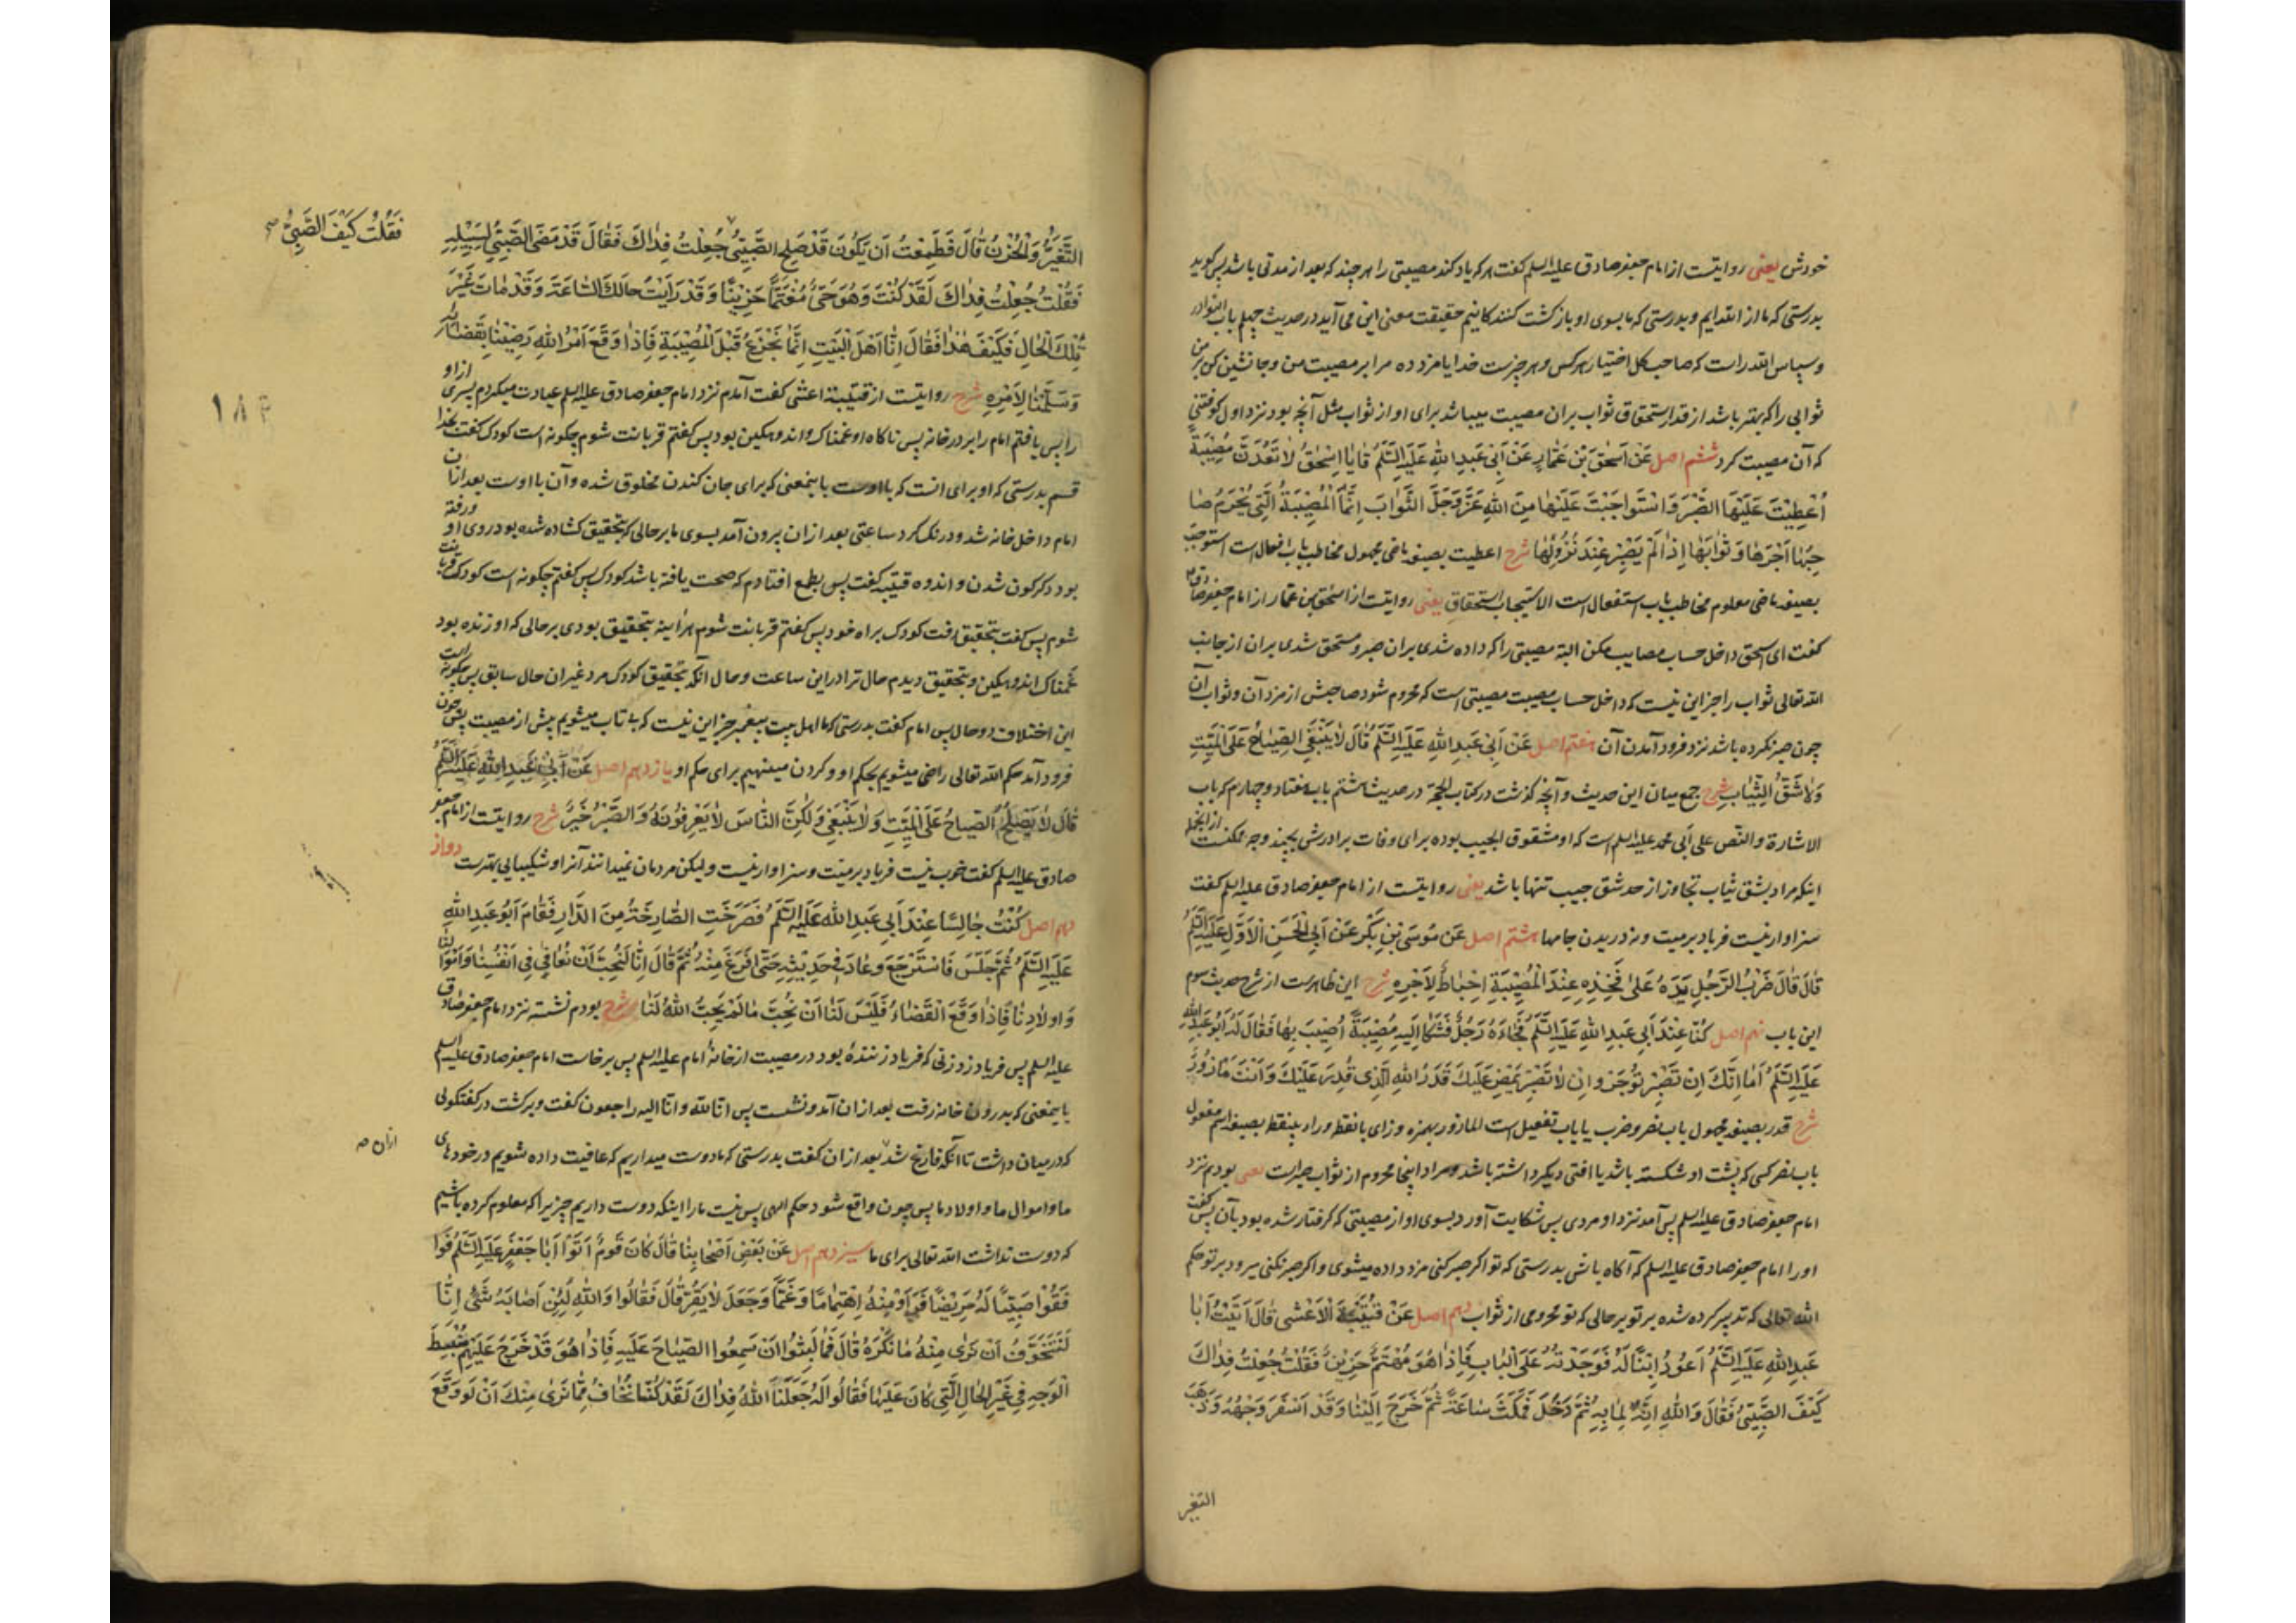 خودش یعنی روایتست از امام جعفر صادق علیه السلم گفت هر که یاد کند مصیبتی را هر چند که بعد از مدتی باشد پس گوید
بدرستی که ما از الله ایم و بدرستی که ما بسوی او بازگشت کنندگانیم حقیقت معنی این می آید در حدیث چهلم باب النوادر
و سپاس الله راست که صاحب کل اختیار هر کس و هر چیزست خدایا مزد ده مرا بر مصیبت من و جانشین کن بر من
ثوابی را که بهتر باشد از قدر استحقاق ثواب بران مصیبت میباشد برای او از ثواب مثل آنچه بود نزد اول کوفتنی
که آن مصیبت کرد ششم اصل عَنْ اِسْحٰقَ بْنِ عَمَّارٍ عَنْ اَبِی عَبْدِ اللّٰهِ عَلَیْهِ السَّلَمُ قَالَ یٰا اِسْحٰقُ لٰا تَعُدَّنَّ مُصِیْبَةً
اُعْطِیْتَ عَلَیْهَا الصَّبْرَ وَ اسْتَوْجَبْتَ عَلَیْهٰا مِنَ اللّٰهِ عَزَّ وَ جَلَّ الثَّوٰابَ اِنَّمَا الْمُصِیْبَةُ الَّتِی یُحْرَمُ صٰا
حِبُهٰا اَجْرَهٰا وَ ثَوٰابَهٰا اِذٰا لَمْ یَصْبِرْ عِنْدَ نُزُوْلِهٰا شرح اعطیت بصیغه ماضی مجهول مخاطب باب افعال است استوجبت
بصیغه ماضی معلوم مخاطب باب استفعال است الاستیجاب استحقاق یعنی روایتست از اسحق بن عمار از امام جعفر صادق
گفت ای اسحق داخل حساب مصایب مکن البته مصیبتی را که داده شدی بران صبر و مستحق شدی بران از جانب
الله تعالی ثواب را جز این نیست که داخل حساب مصیبت مصیبتی است که محروم شود صاحبش از مزد آن و ثواب آن
چون صبر نکرده باشد نزد فرود آمدن آن هفتم اصل عَنْ اَبِی عَبْدِ اللّٰهِ عَلَیْهِ السَّلَمُ قَالَ لٰا یَنْبَغِی الصِّیٰاحُ عَلَی الْمَیِّتِ
وَ لٰا شَقُّ الثِّیٰابِ شرح جمع میان این حدیث و آنچه گذشت در کتاب الحجة در حدیث هشتم باب هفتاد و چهارم که باب
الاشارة و النص علی ابی محمد علیه السلم است که او مشقوق الجیب بوده برای وفات برادرش بچند وجه ممکنست از انجمله
اینکه مراد بشق ثیاب تجاوز از حد شق جیب تنها باشد یعنی روایتست از امام جعفر صادق علیه السلم گفت
سزاوار نیست فریاد بر میت و نه دریدن جامها هشتم اصل عَنْ مُوْسَی بْنِ بَکْرٍ عَنْ اَبِی الْحَسَنِ الْاَوَّلِ عَلَیْهِ السَّلَمُ
قَالَ قَالَ ضَرْبُ الرَّجُلِ یَدَهُ عَلٰی فَخِذِهِ عِنْدَ الْمُصِیْبَةِ اِحْبٰاطٌ لِاَجْرِهِ شرح این ظاهرست از شرح حدیث سوم
این باب نهم اصل کُنَّا عِنْدَ اَبِی عَبْدِ اللّٰهِ عَلَیْهِ السَّلَمُ فَجٰاءَهُ رَجُلٌ فَشَکٰا اِلَیْهِ مُصِیْبَةً اُصِیْبَ بِهٰا فَقٰالَ لَهُ اَبُوْ عَبْدِ اللّٰهِ
عَلَیْهِ السَّلَمُ اَمٰا اِنَّکَ اِنْ تَصْبِرْ تُوْجَرْ وَ اِنْ لٰا تَصْبِرْ یَمْضِ عَلَیْکَ قَدَرُ اللّٰهِ الَّذِی قُدِّرَ عَلَیْکَ وَ اَنْتَ مَاْزُوْرٌ
شرح قدر بصیغه مجهول باب نصر و ضرب یا باب تفعیل است المازور بهمزه و زای بانقطه و راء بینقطه بصیغه اسم مفعول
باب نصر کسی که پشت او شکسته باشد یا افتی دیگر داشته باشد و مراد اینجا محروم از ثواب صبر است یعنی بودیم نزد
امام جعفر صادق علیه السلم پس آمد نزد او مردی پس شکایت آورد بسوی او از مصیبتی که گرفتار شده بود بآن پس گفت
او را امام جعفر صادق علیه السلم که آگاه باش بدرستی که تو اگر صبر کنی مزد داده میشوی و اگر صبر نکنی میرود بر تو حکم
الله تعالی که تدبیر کرده شده بر تو بر حالی که تو محرومی از ثواب دهم اصل عَنْ قُتَیْبَةَ الْاَعْشٰی قَالَ اَتَیْتُ اَبٰا
عَبْدِ اللّٰهِ عَلَیْهِ السَّلَمُ اَعُوْدُ اِبْنًا لَهُ فَوَجَدْتُهُ عَلَی الْبٰابِ فَاِذٰا هُوَ مُهْتَمٌّ حَزِیْنٌ فَقُلْتُ جُعِلْتُ فِدٰاکَ
کَیْفَ الصَّبِیُّ فَقٰالَ وَ اللّٰهِ اِنَّهُ لِمٰا بِهِ ثُمَّ دَخَلَ فَمَکَثَ سٰاعَةً ثُمَّ خَرَجَ اِلَیْنٰا وَ قَدْ اَسْفَرَ وَجْهُهُ وَ ذَهَبَ
التغیر
فَقُلْتُ کَیْفَ الصَّبِیُّ صح
التَّغَیُّرُ وَ الْحُزْنُ قَالَ فَطَمِعْتُ اَنْ یَکُوْنَ قَدْ صَلَحَ الصَّبِیُّ جُعِلْتُ فِدٰاکَ فَقٰالَ قَدْ مَضَی الصَّبِیُّ لِسَبِیْلِهِ
فَقُلْتُ جُعِلْتُ فِدٰاکَ لَقَدْ کُنْتَ وَ هُوَ حَیٌّ مُغْتَمًّا حَزِیْنًا وَ قَدْ رَاَیْتُ حٰالَکَ السّٰاعَةَ وَ قَدْ مٰاتَ غَیْرَ
تِلْکَ الْحٰالِ فَکَیْفَ هٰذٰا فَقٰالَ اِنّٰا اَهْلَ الْبَیْتِ اِنَّمٰا نَجْزَعُ قَبْلَ الْمُصِیْبَةِ فَاِذٰا وَقَعَ اَمْرُ اللّٰهِ رَضِیْنٰا بِقَضٰائِهِ
وَ سَلَّمْنٰا لِاَمْرِهِ شرح روایتست از قتیبه اعشی گفت آمدم نزد امام جعفر صادق علیه السلم عیادت میکردم پسری از او
را پس یافتم امام را بر در خانه پس ناگاه او غمناک و اندوهگین بود پس گفتم قربانت شوم چگونه است کودک گفت بخدا
قسم بدرستی که او برای انست که بااوست باینمعنی که برای جان کندن مخلوق شده و آن با اوست بعد ازان
امام داخل خانه شد و درنگ کرد ساعتی بعد ازان برون آمد بسوی ما بر حالی که بتحقیق گشاده شده بود روی او و رفته
بود دگرگون شدن و اندوه قتیبه گفت پس بطمع افتادم که صحت یافته باشد کودک پس گفتم چگونه است کودک قربانت
شوم پس گفت بتحقیق رفت کودک براه خود پس گفتم قربانت شوم هر آینه بتحقیق بودی بر حالی که او زنده بود
غمناک اندوهگین و بتحقیق دیدم حال ترا در این ساعت و حال آنکه بتحقیق کودک مرد غیر ان حال سابق پس چگونه است
این اختلاف دو حال پس امام گفت بدرستی که ما اهل بیت پیغمبر جز این نیست که بی تاب میشویم پیش از مصیبت پس چون
فرود آمد حکم الله تعالی راضی میشویم بحکم او و گردن مینهیم برای حکم او یازدهم اصل عَنْ اَبِی عَبْدِ اللّٰهِ عَلَیْهِ السَّلَمُ
قَالَ لٰا یَصْلُحُ الصِّیٰاحُ عَلَی الْمَیِّتِ وَ لٰا یَنْبَغِی وَ لٰکِنَّ النّٰاسَ لٰا یَعْرِفُوْنَهُ وَ الصَّبْرُ خَیْرٌ شرح روایتست از امام جعفر
صادق علیه السلم گفت خوب نیست فریاد بر میت و سزاوار نیست و لیکن مردمان نمیدانند آنرا و شکیبایی بهترست دواز
دهم اصل کُنْتُ جٰالِسًا عِنْدَ اَبِی عَبْدِ اللّٰهِ عَلَیْهِ السَّلَمُ فَصَرَخَتِ الصّٰارِخَةُ مِنَ الدّٰارِ فَقٰامَ اَبُوْ عَبْدِ اللّٰهِ
عَلَیْهِ السَّلَمُ ثُمَّ جَلَسَ فَاسْتَرْجَعَ وَ عٰادَ فِی حَدِیْثِهِ حَتّٰی فَرَغَ مِنْهُ ثُمَّ قَالَ اِنّٰا لَنُحِبُّ اَنْ نُعٰافٰی فِی اَنْفُسِنٰا وَ اَمْوٰالِنٰا
وَ اَوْلٰادِنٰا فَاِذٰا وَقَعَ الْقَضٰاءُ فَلَیْسَ لَنٰا اَنْ نُحِبَّ مٰا لَمْ یُحِبَّ اللّٰهُ لَنٰا شرح بودم نشسته نزد امام جعفر صادق
علیه السلم پس فریاد زد زنی که فریاد زننده بود در مصیبت از خانهٔ امام علیه السلم پس برخاست امام جعفر صادق علیه السلم
باینمعنی که بدرون خانه رفت بعد ازان آمد و نشست پس انا لله و انا الیه راجعون گفت و برگشت در گفتگوئی
که در میان داشت تا آنکه فارغ شد بعد ازان گفت بدرستی که ما دوست میداریم که عافیت داده شویم در خودهای
ازان صح
ما و اموال ما و اولاد ما پس چون واقع شود حکم الهی پس نیست ما را اینکه دوست داریم چیزیرا که معلوم کرده باشیم
که دوست نداشت الله تعالی برای ما سیزدهم اصل عَنْ بَعْضِ اَصْحٰابِنٰا قَالَ کٰانَ قَوْمٌ اَتَوْا اَبٰا جَعْفَرٍ عَلَیْهِ السَّلَمُ فَوٰا
فَقُوْا صَبِیًّا لَهُ مَرِیْضًا فَرَاَوْا مِنْهُ اِهْتِمٰامًا وَ غَمًّا وَ جَعَلَ لٰا یَقِرُّ قَالَ فَقٰالُوْا وَ اللّٰهِ لَئِنْ اَصٰابَهُ شَیْءٌ اِنّٰا
لَنَتَخَوَّفُ اَنْ نَرٰی مِنْهُ مٰا نَکْرَهُ قَالَ فَمٰا لَبِثُوْا اَنْ سَمِعُوا الصِّیٰاحَ عَلَیْهِ فَاِذٰا هُوَ قَدْ خَرَجَ عَلَیْهِمْ مُنْبَسِطَ
الْوَجْهِ فِی غَیْرِ الْحٰالِ الَّتِی کٰانَ عَلَیْهٰا فَقٰالُوْا لَهُ جَعَلَنَا اللّٰهُ فِدٰاکَ لَقَدْ کُنّٰا نَخٰافُ مِمّٰا نَرٰی مِنْکَ اَنْ لَوْ وَقَعَ